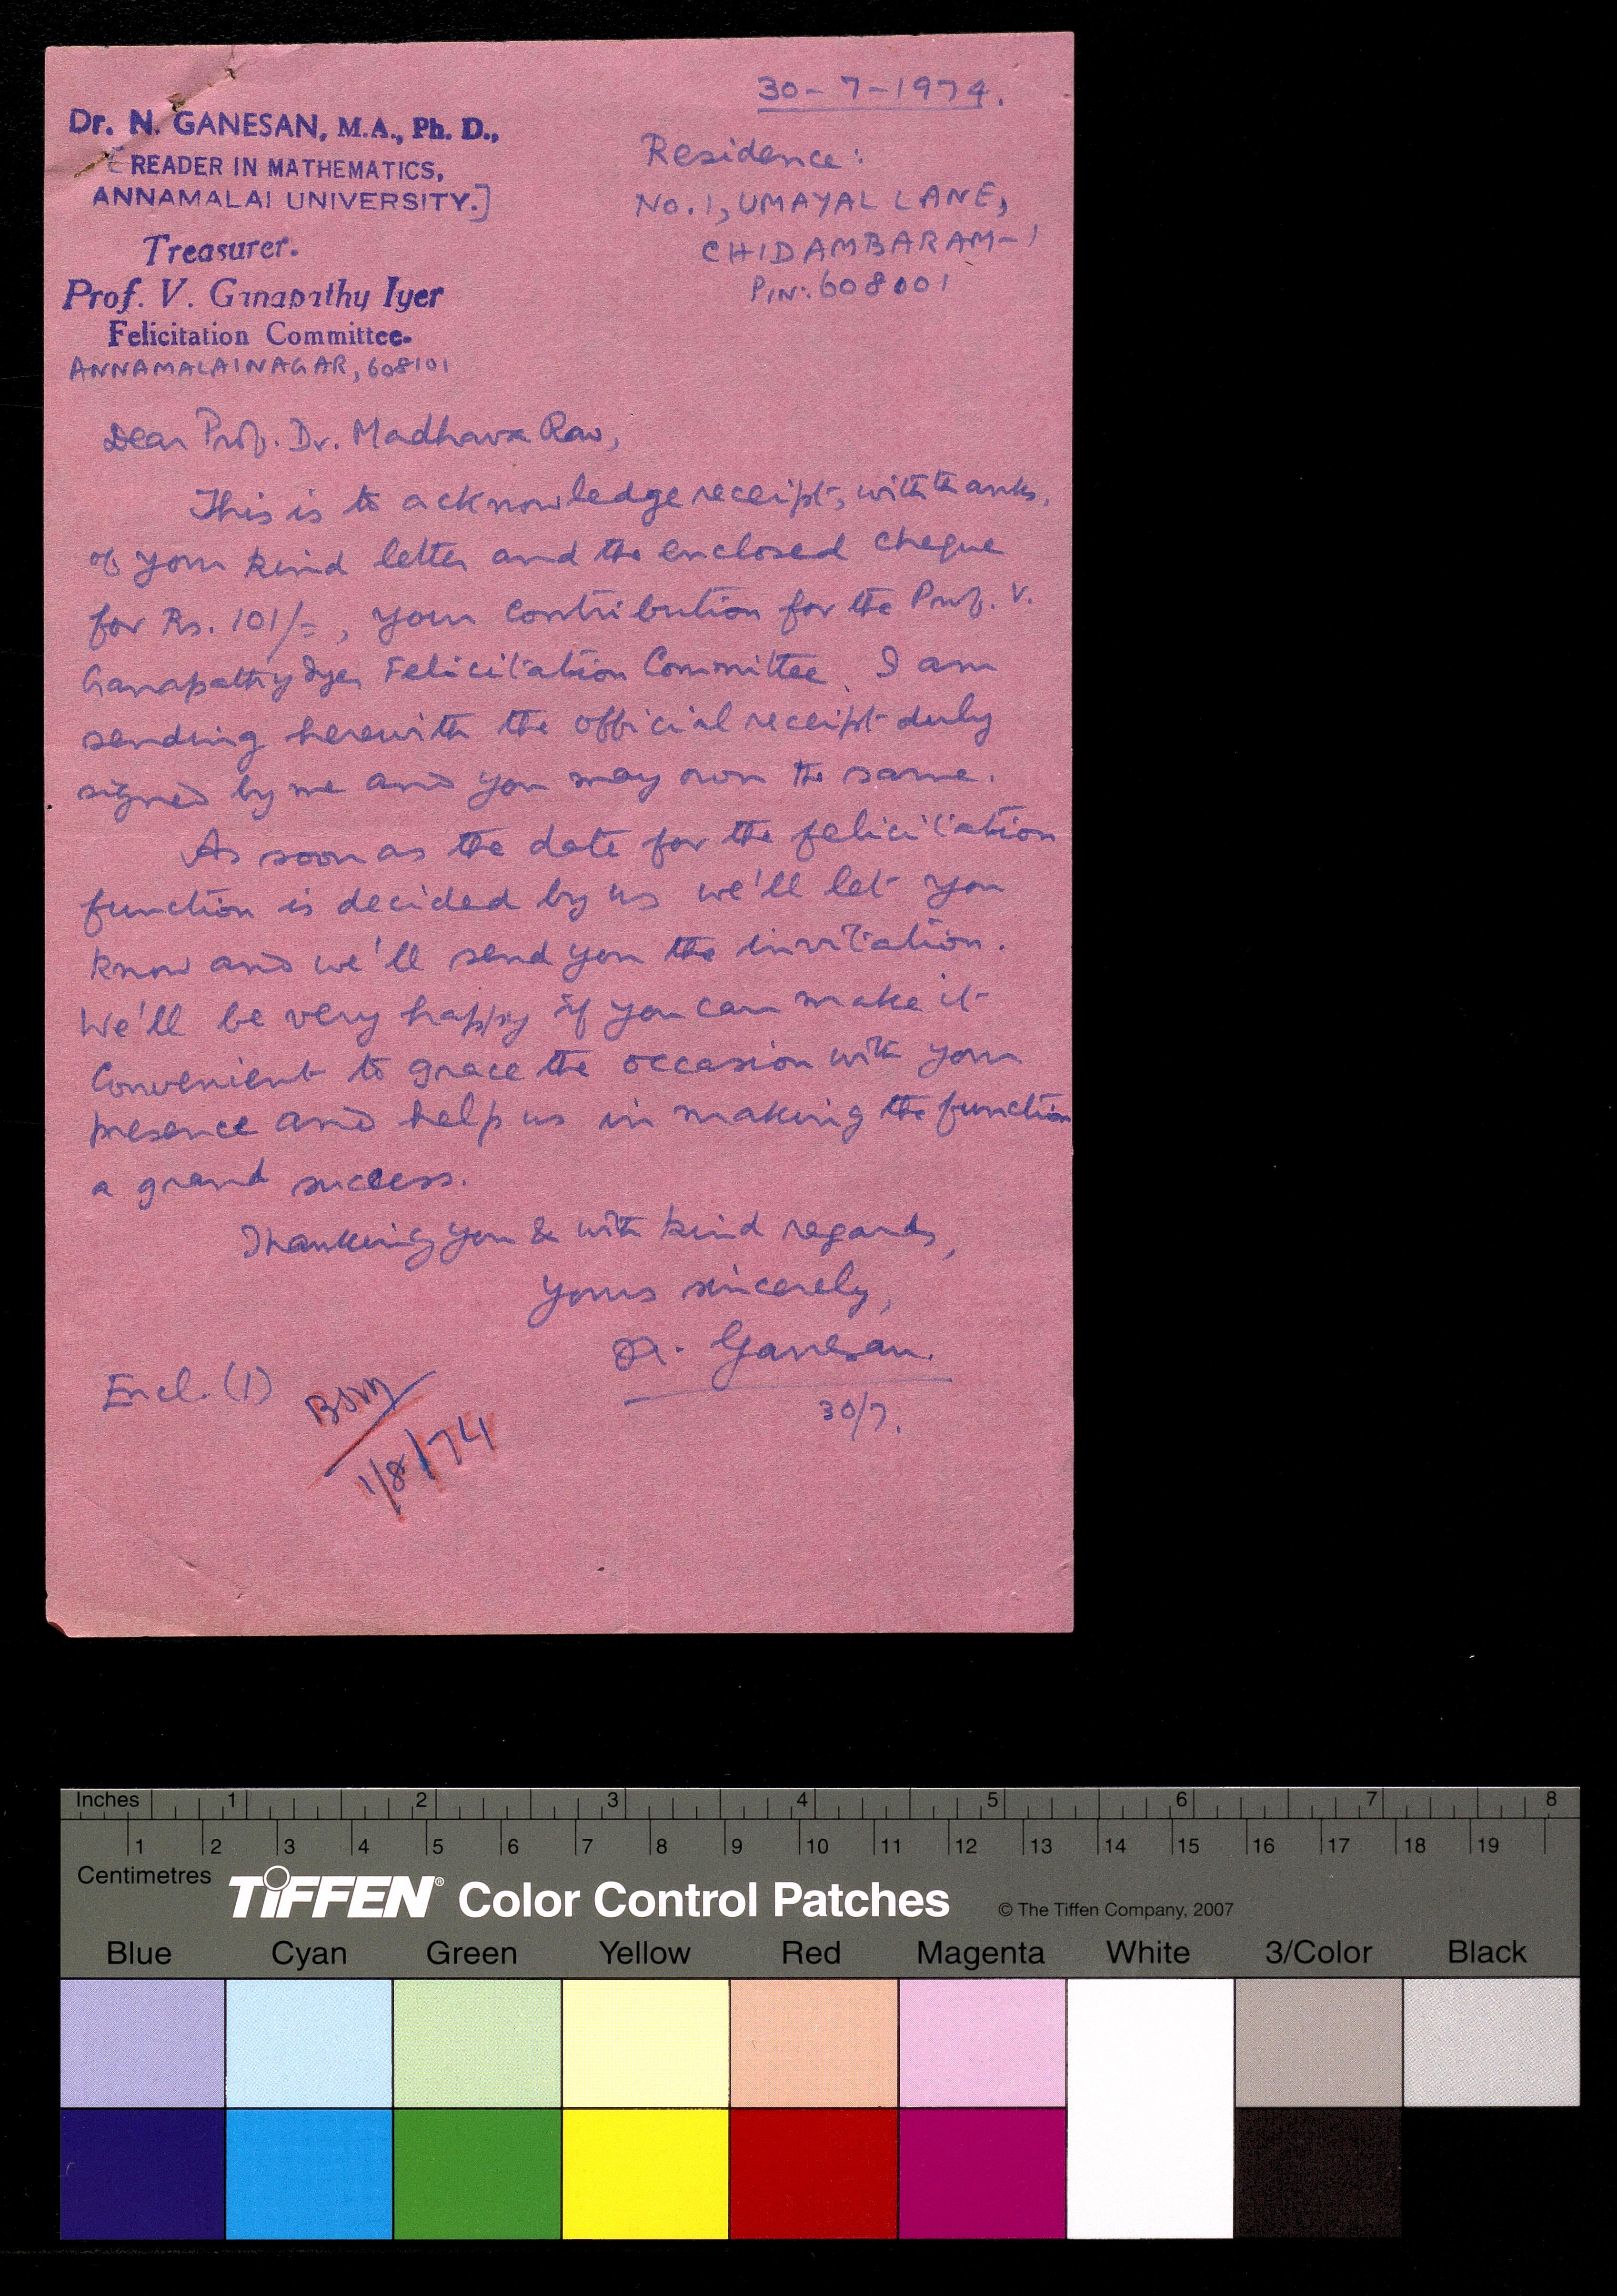 30-7-1974.
Dr. N. GANESAN, M.A., Ph. D.,
[READER IN MATHEMATICS,
ANNAMALAI UNIVERSITY.]
Treasurer.
Prof. V. Ganapathy Iyer
Felicitation Committee.
ANNAMALAINAGAR, 608101
Residence:
No. 1, UMAYAL LANE,
CHIDAMBARAM-1
PIN: 608001
Dear Prof. Dr. Madhava Rao,
This is to acknowledge receipt, with thanks,
of your kind letter and the enclosed cheque
for Rs. 101/=, your contribution for the Prof. V.
Ganapathy Iyer Felicitation Committee. I am
sending herewith the official receipt duly
signed by me and you may own the same.
As soon as the date for the felicitation
function is decided by us we'll let you
know and we'll send you the invitation.
We'll be very happy if you can make it
convenient to grace the occasion with your
presence and help us in making the function
a grand success.
Thanking you & with kind regards,
Yours sincerely,
Ganesan.
30/7.
Encl. (1)
BSM
1/8/74
Inches 1 2 3 4 5 6 7 8
1 2 3 4 5 6 7 8 9 10 11 12 13 14 15 16 17 18 19
Centimetres
TIFFEN® Color Control Patches © The Tiffen Company, 2007
Blue Cyan Green Yellow Red Magenta White 3/Color Black